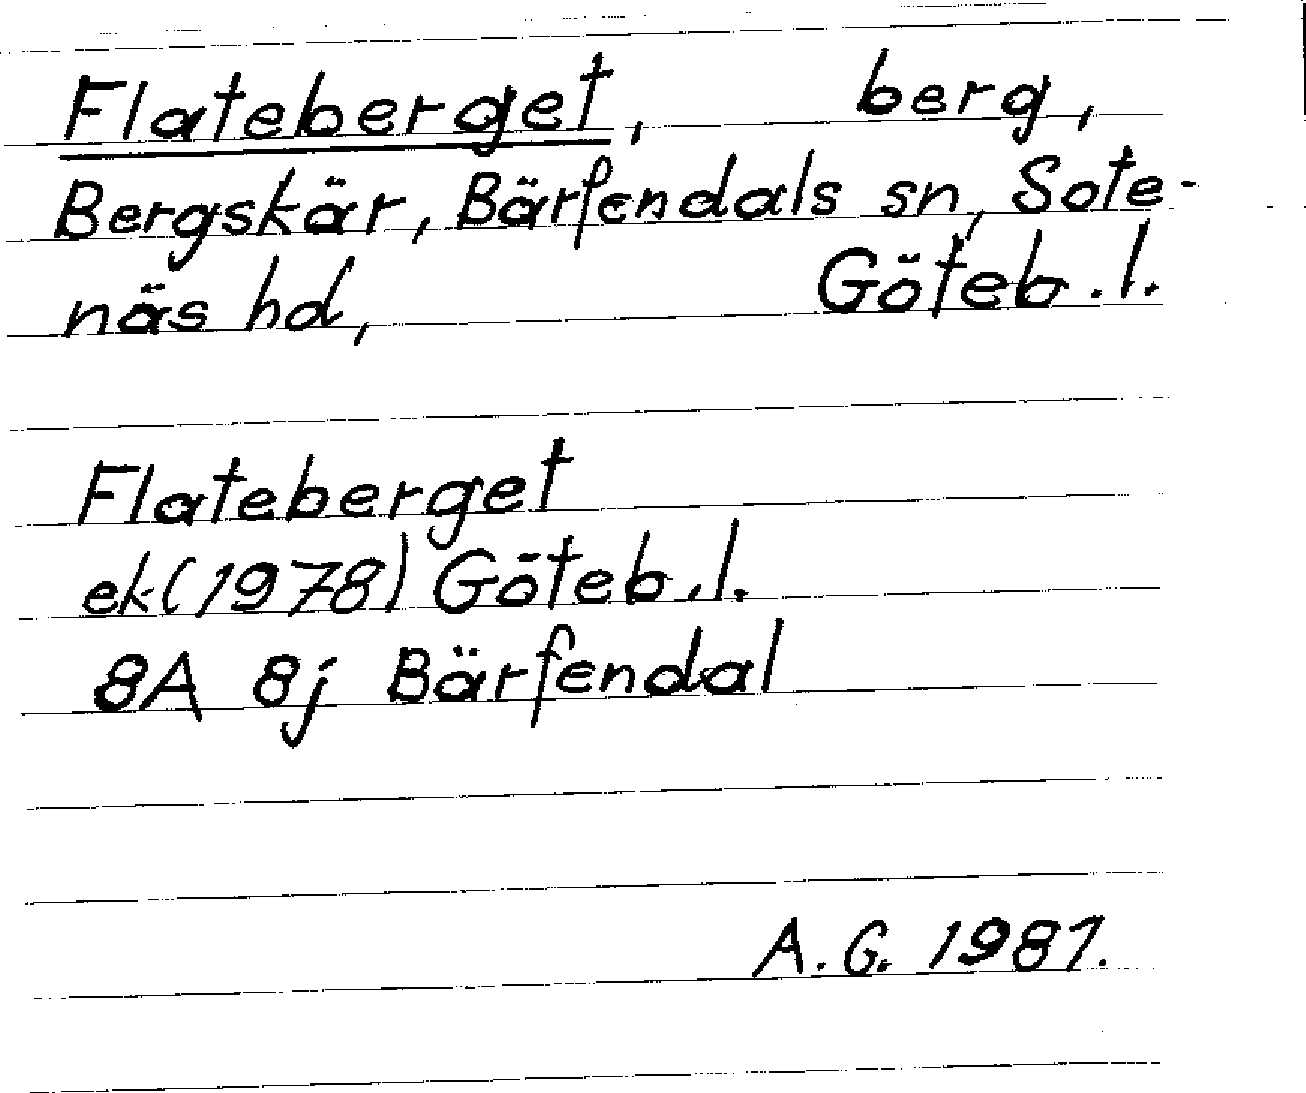 Flateberget, berg,
Bergskär, Bärfendals sn, Sote-
näs hd, Göteb. l.
Flateberget
ek (1978) Göteb. l.
8A 8j Bärfendal
A. G. 1987.